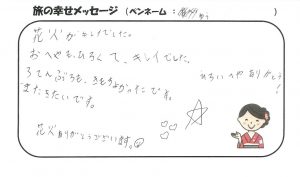 旅の幸せメッセージ (ペンネーム: ゆう)
花火がキレイでした。
おへやも、ひろくて、キレイでした。
ろてんぶろも、きもちよかったです。
またきたいです。
花火ありがとうございます。